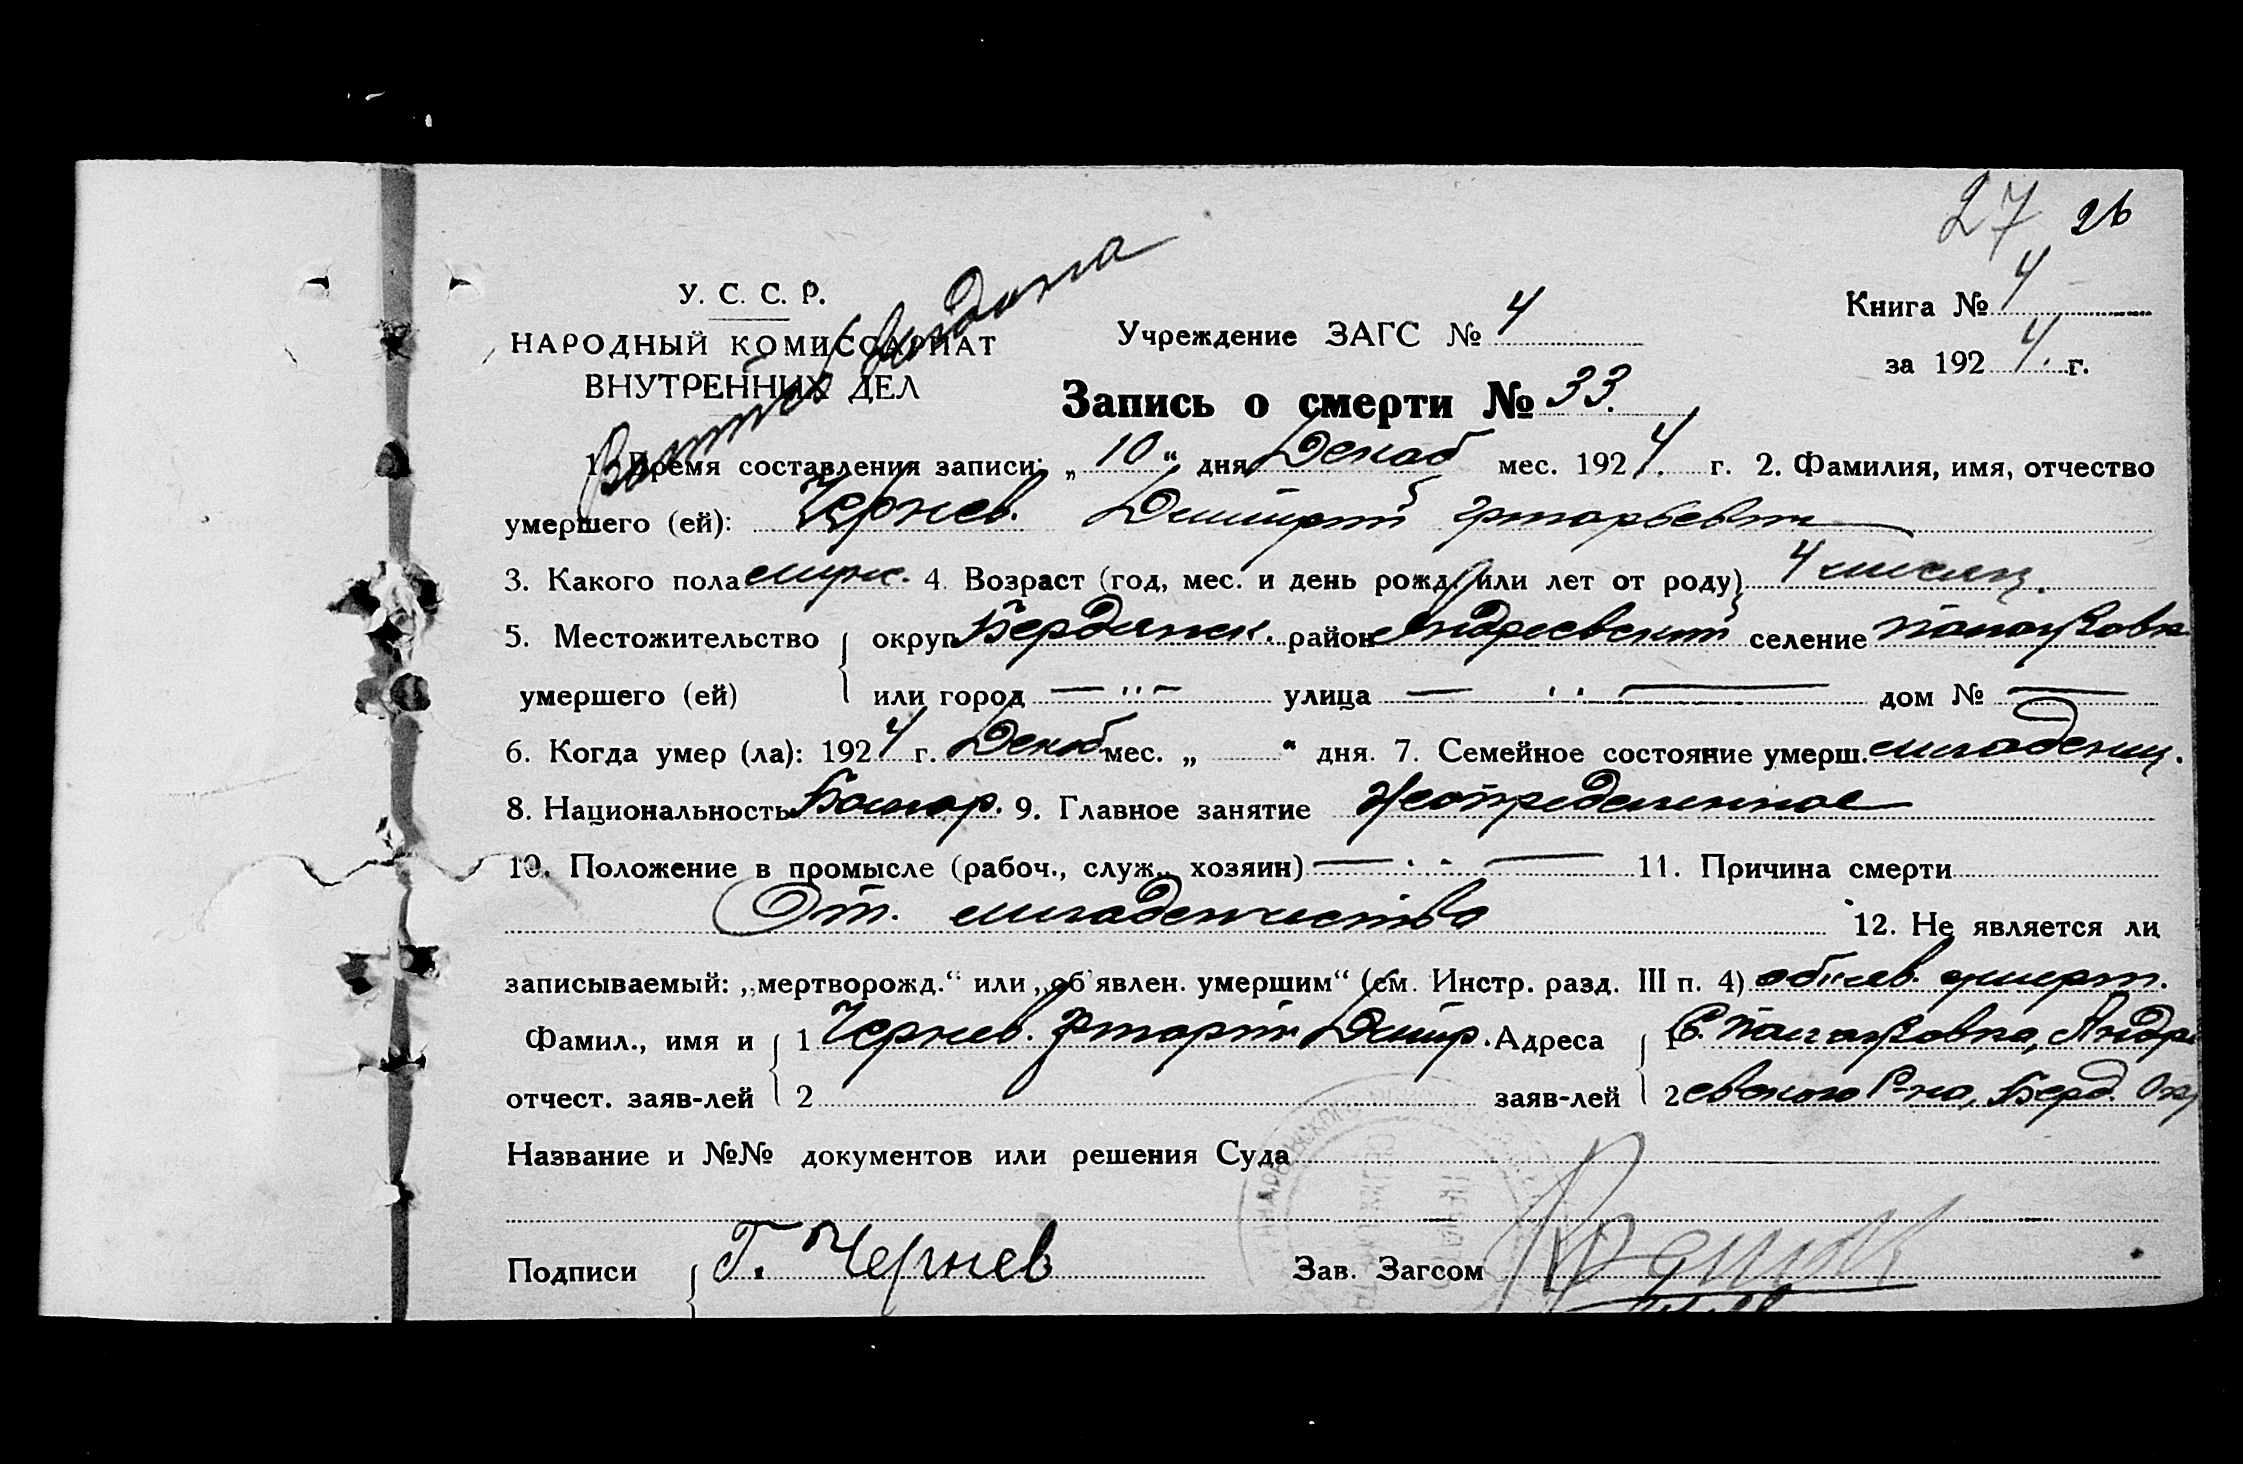 27 26
У. С. С. Р.
НАРОДНЫЙ КОМИССАРИАТ
ВНУТРЕННИХ ДЕЛ
выдана
Учреждение ЗАГС № 4
Книга № 4
за 1924 г.
Запись о смерти № 33.
1. Время составления записи: „10“ дня Декаб мес. 1924. г. 2. Фамилия, имя, отчество
умершего (ей): Чернев. Дмитрий
3. Какого пола мужс. 4. Возраст (год, мес. и день рожд. или лет от роду) 4 месяц.
5. Местожительство округ Бердянск. район Андреевский селение
умершего (ей) или город — улица — дом № —
6. Когда умер (ла): 1924 г. Декаб мес. „ “ дня. 7. Семейное состояние умерш. младенец.
8. Национальность Болгар. 9. Главное занятие Неопределенное
10. Положение в промысле (рабоч., служ., хозяин) — 11. Причина смерти
От. младенчества 12. Не является ли
записываемый: „мертворожд.“ или „об'явлен. умершим“ (см. Инстр. разд. III п. 4) об'яв. умерш.
Фамил., имя и 1 Чернев. Дмитр. Адреса 1 С. Андре
отчест. заяв-лей 2 заяв-лей 2 евского Р-на, Берд. Окр
Название и №№ документов или решения Суда
Подписи Г. Чернев Зав. Загсом